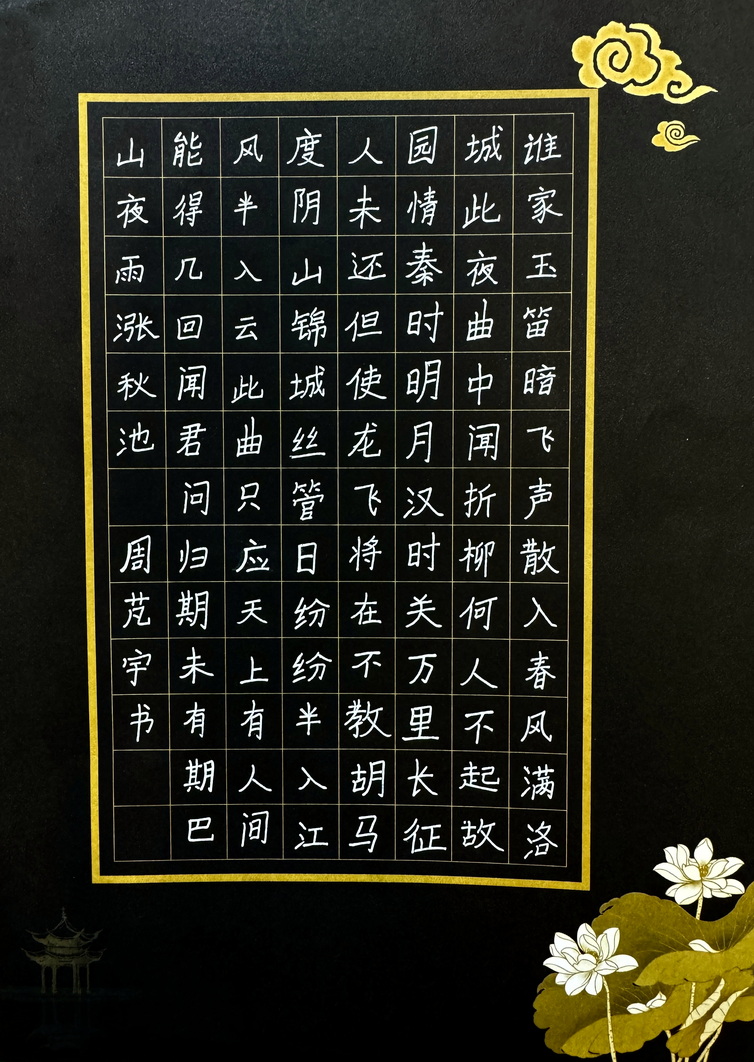 谁家玉笛暗飞声散入春风满洛
城此夜曲中闻折柳何人不起故
园情秦时明月汉时关万里长征
人未还但使龙飞将在不教胡马
度阴山锦城丝管日纷纷半入江
风半入云此曲只应天上有人间
能得几回闻君问归期未有期巴
山夜雨涨秋池 周芃宇书